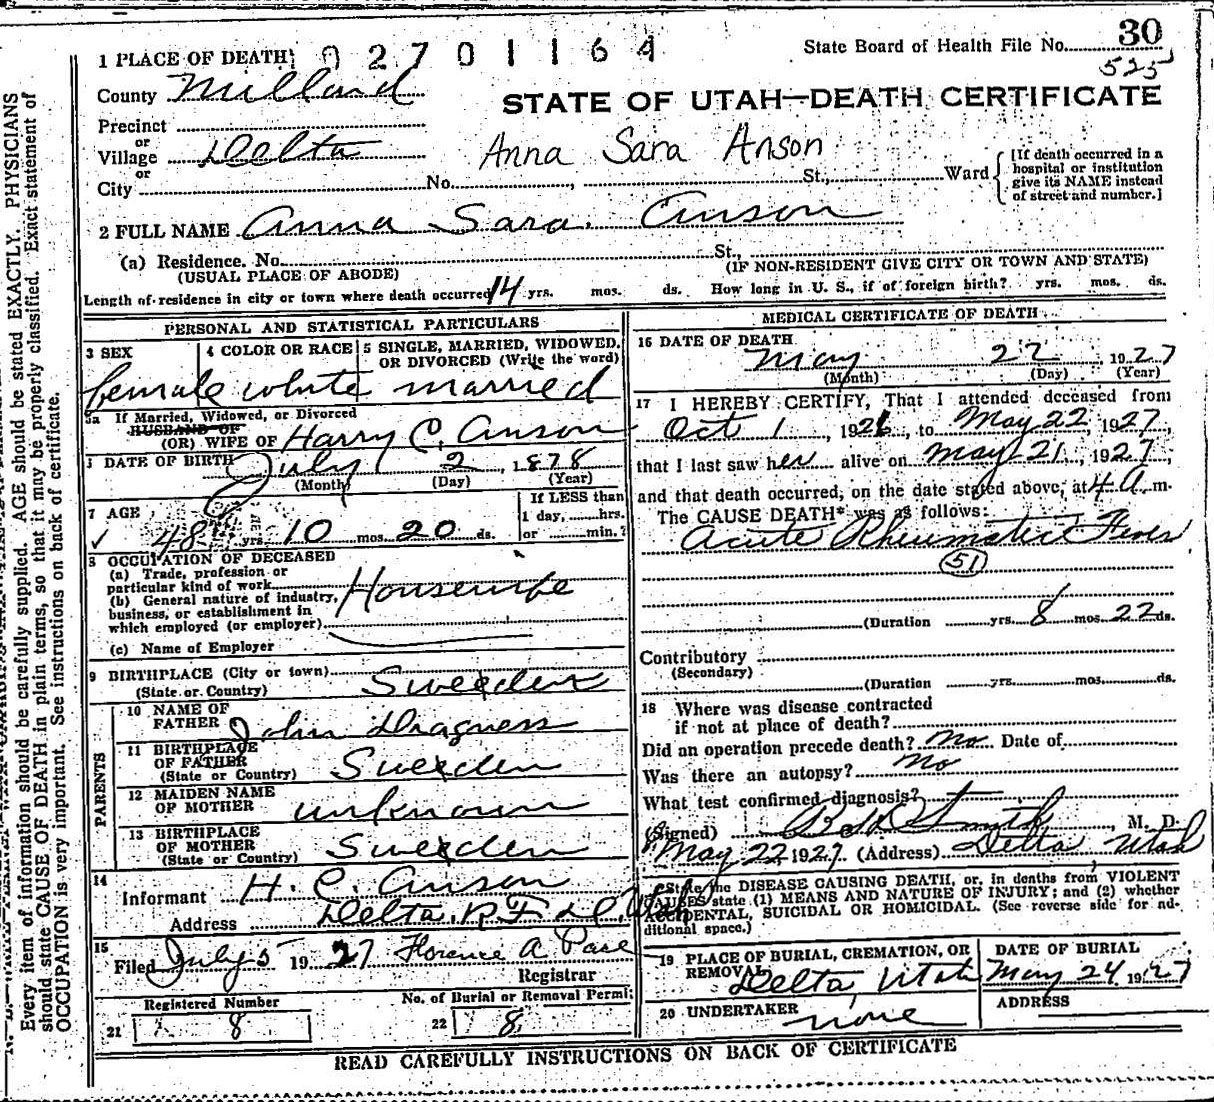 State Board of Health File No. 30
525
1 PLACE OF DEATH 02701164
County Millard
STATE OF UTAH—DEATH CERTIFICATE
Precinct
or
Village Delta
Anna Sara Anson
or
City No. St., Ward
[If death occurred in a
hospital or institution
give its NAME instead
of street and number.]
2 FULL NAME Anna Sara Anson
(a) Residence. No. St.,
(USUAL PLACE OF ABODE) (IF NON-RESIDENT GIVE CITY OR TOWN AND STATE)
Length of residence in city or town where death occurred 14 yrs. mos. ds. How long in U. S., if of foreign birth? yrs. mos. ds.
PERSONAL AND STATISTICAL PARTICULARS
3 SEX 4 COLOR OR RACE 5 SINGLE, MARRIED, WIDOWED.
OR DIVORCED (Write the word)
female white married
5a If Married, Widowed, or Divorced
HUSBAND OF
(OR) WIFE OF Harry C. Anson
DATE OF BIRTH July 2, 1878
(Month) (Day) (Year)
7 AGE 48 yrs. 10 mos. 20 ds.
If LESS than
1 day, hrs.
or min.?
8 OCCUPATION OF DECEASED
(a) Trade, profession or
particular kind of work Housewife
(b) General nature of industry,
business, or establishment in
which employed (or employer)
(c) Name of Employer
9 BIRTHPLACE (City or town)
(State or Country) Sweeden
PARENTS
10 NAME OF
FATHER John Dragness
11 BIRTHPLACE
OF FATHER
(State or Country) Sweeden
12 MAIDEN NAME
OF MOTHER unknown
13 BIRTHPLACE
OF MOTHER
(State or Country) Sweeden
14
Informant H. C. Anson
Address Delta, R F D Utah
15
Filed July 5 1927 Florence A Pace
Registrar
Registered Number No. of Burial or Removal Permit
21 8 22 8
MEDICAL CERTIFICATE OF DEATH
16 DATE OF DEATH
May 22 1927
(Month) (Day) (Year)
17 I HEREBY CERTIFY, That I attended deceased from
Oct 1, 1926, to May 22, 1927,
that I last saw her alive on May 21, 1927,
and that death occurred, on the date stated above, at 4 A m.
The CAUSE DEATH* was as follows:
Acute Rheumatic Fever
51
(Duration yrs. 8 mos. 22 ds.
Contributory
(Secondary)
(Duration yrs. mos. ds.
18 Where was disease contracted
if not at place of death?
Did an operation precede death? No Date of
Was there an autopsy? No
What test confirmed diagnosis?
(Signed) Smith, M. D.
May 22 1927. (Address) Delta, Utah
*State the DISEASE CAUSING DEATH, or, in deaths from VIOLENT
CAUSES state (1) MEANS AND NATURE OF INJURY; and (2) whether
ACCIDENTAL, SUICIDAL OR HOMICIDAL. (See reverse side for ad-
ditional space.)
19 PLACE OF BURIAL, CREMATION, OR
REMOVAL
Delta, Utah
DATE OF BURIAL
May 24 1927
20 UNDERTAKER none
ADDRESS
READ CAREFULLY INSTRUCTIONS ON BACK OF CERTIFICATE
Every item of information should be carefully supplied. AGE should be stated EXACTLY. PHYSICIANS
should state CAUSE OF DEATH in plain terms, so that it may be properly classified. Exact statement of
OCCUPATION is very important. See instructions on back of certificate.